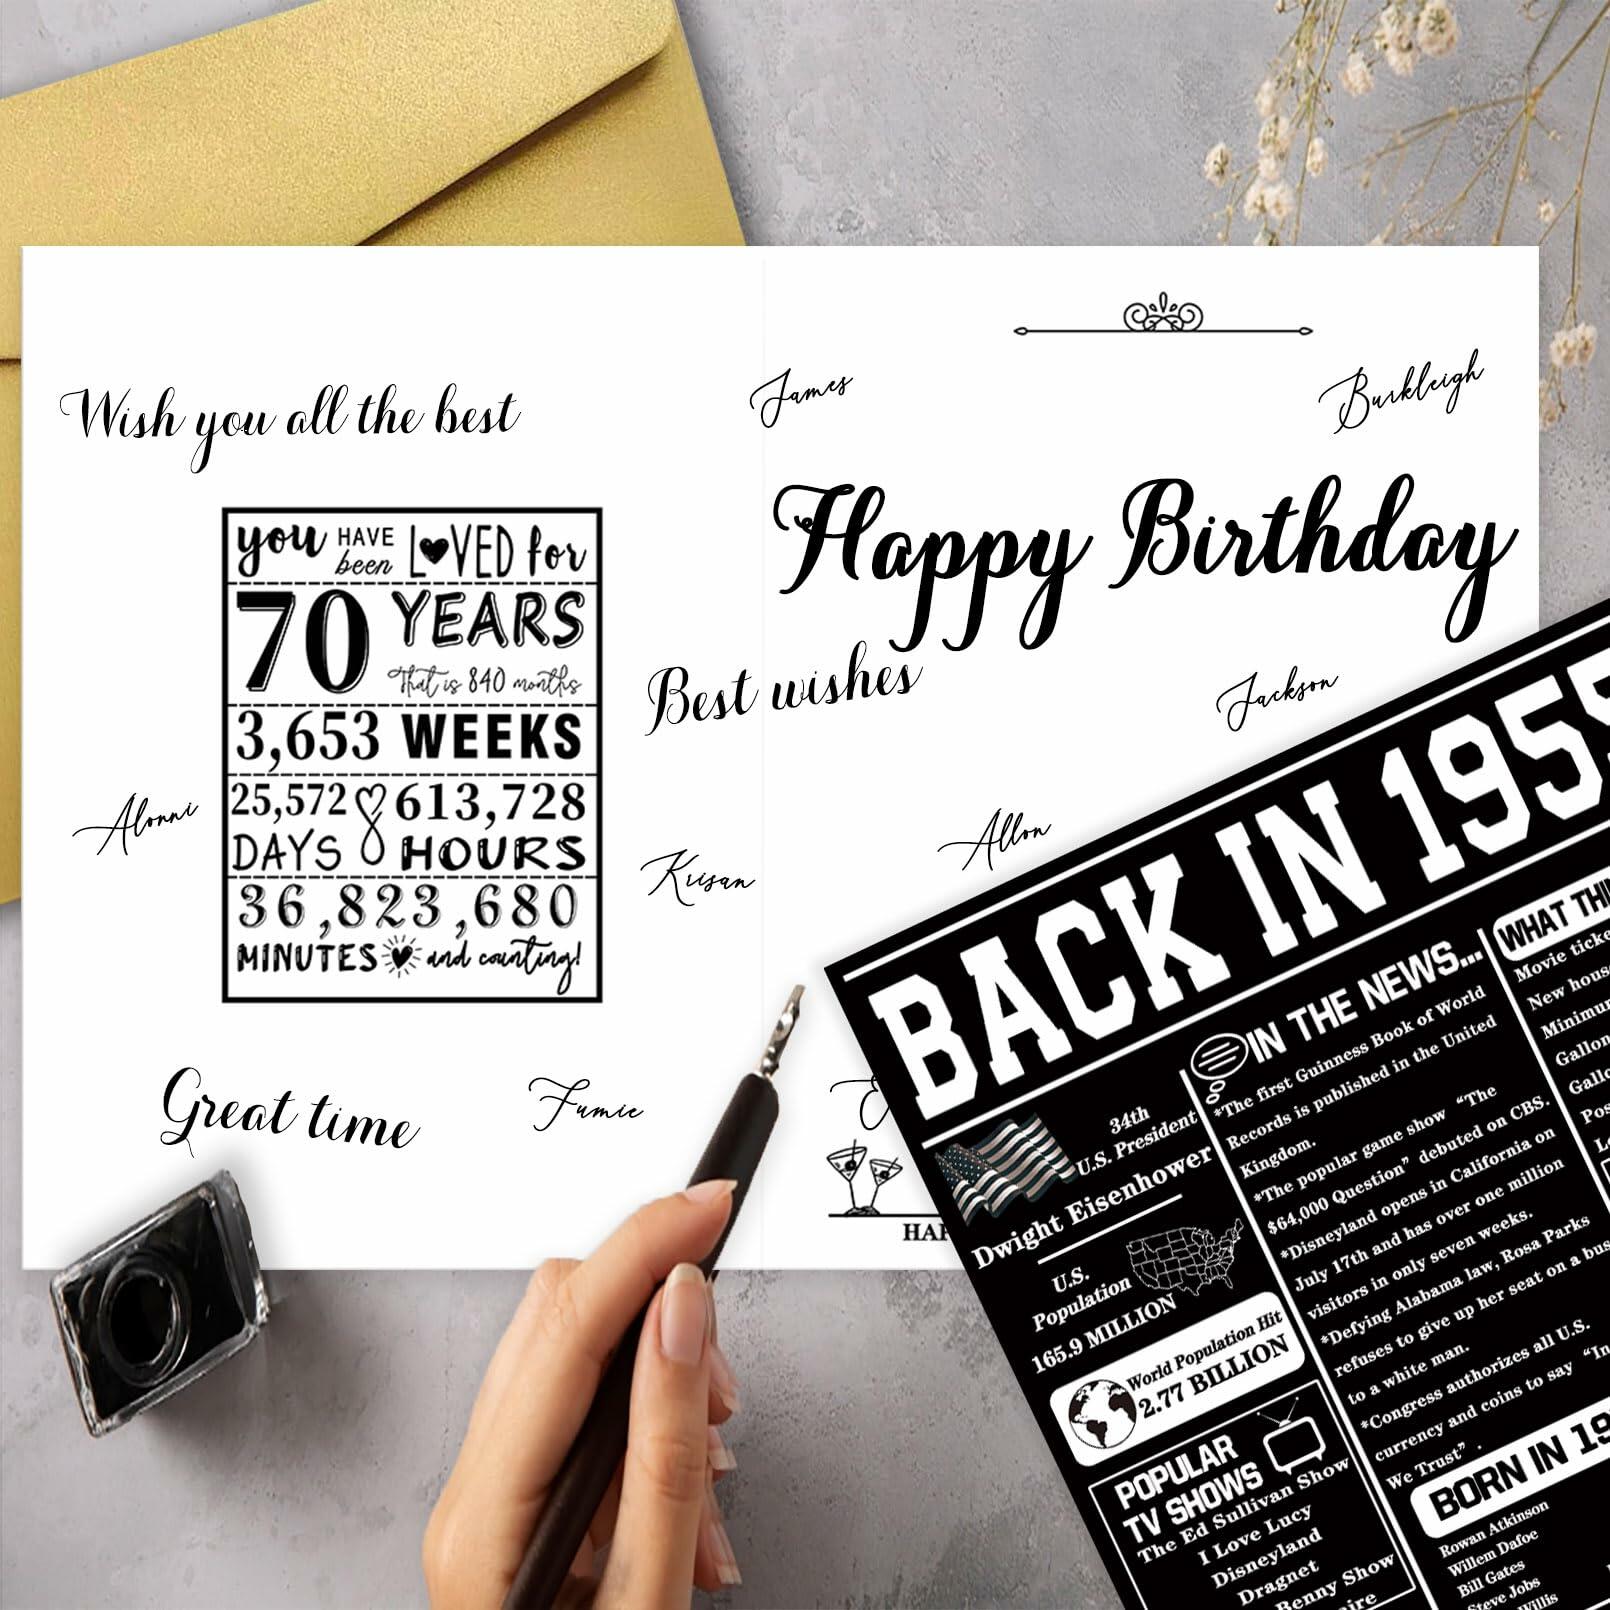 Wish you all the best
James
Burkleigh
Happy Birthday
you HAVE been LOVED for
70 YEARS
That is 840 months
3,653 WEEKS
25,572 DAYS
613,728 HOURS
36,823,680
MINUTES and counting!
Best wishes
Jackson
Alonni
Krisan
Allon
Great time
Fumie
HAP
BACK IN 1955
34th
U.S. President
Dwight Eisenhower
U.S.
Population
165.9 MILLION
World Population Hit
2.77 BILLION
POPULAR
TV SHOWS
The Ed Sullivan Show
I Love Lucy
Disneyland
Dragnet
enny Show
ire
IN THE NEWS...
*The first Guinness Book of World
Records is published in the United
Kingdom.
*The popular game show “The
$64,000 Question” debuted on CBS.
*Disneyland opens in California on
July 17th and has over one million
visitors in only seven weeks.
*Defying Alabama law, Rosa Parks
refuses to give up her seat on a bus
to a white man.
*Congress authorizes all U.S.
currency and coins to say “In
We Trust” .
BORN IN 19
Rowan Atkinson
Willem Dafoe
Bill Gates
Steve Jobs
Willis
WHAT THI
Movie ticke
New hous
Minimu
Gallon
Gallo
Pos